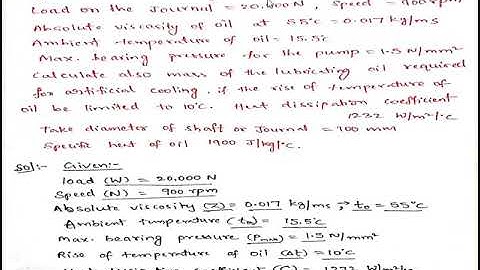 Load on the Journal = 20,000 N, Speed = 900 rpm
Absolute viscosity of oil at 55°c = 0.017 kg/ms
Ambient temperature of oil = 15.5°c
Max. bearing pressure for the pump = 1.5 N/mm²
Calculate also mass of the lubricating oil required
for artificial cooling, if the rise of temperature of
oil be limited to 10°c. Heat dissipation coefficient
1232 W/m²/°c
Take diameter of shaft or Journal = 100 mm
Specific heat of oil 1900 J/kg/°c.
Sol:- Given:-
load (W) = 20,000 N
Speed (N) = 900 rpm
Absolute viscosity (Z) = 0.017 kg/ms, → to = 55°c
Ambient temperature (ta) = 15.5°c
Max. bearing pressure (Pmax) = 1.5 N/mm²
Rise of temperature of oil (Δt) = 10°c